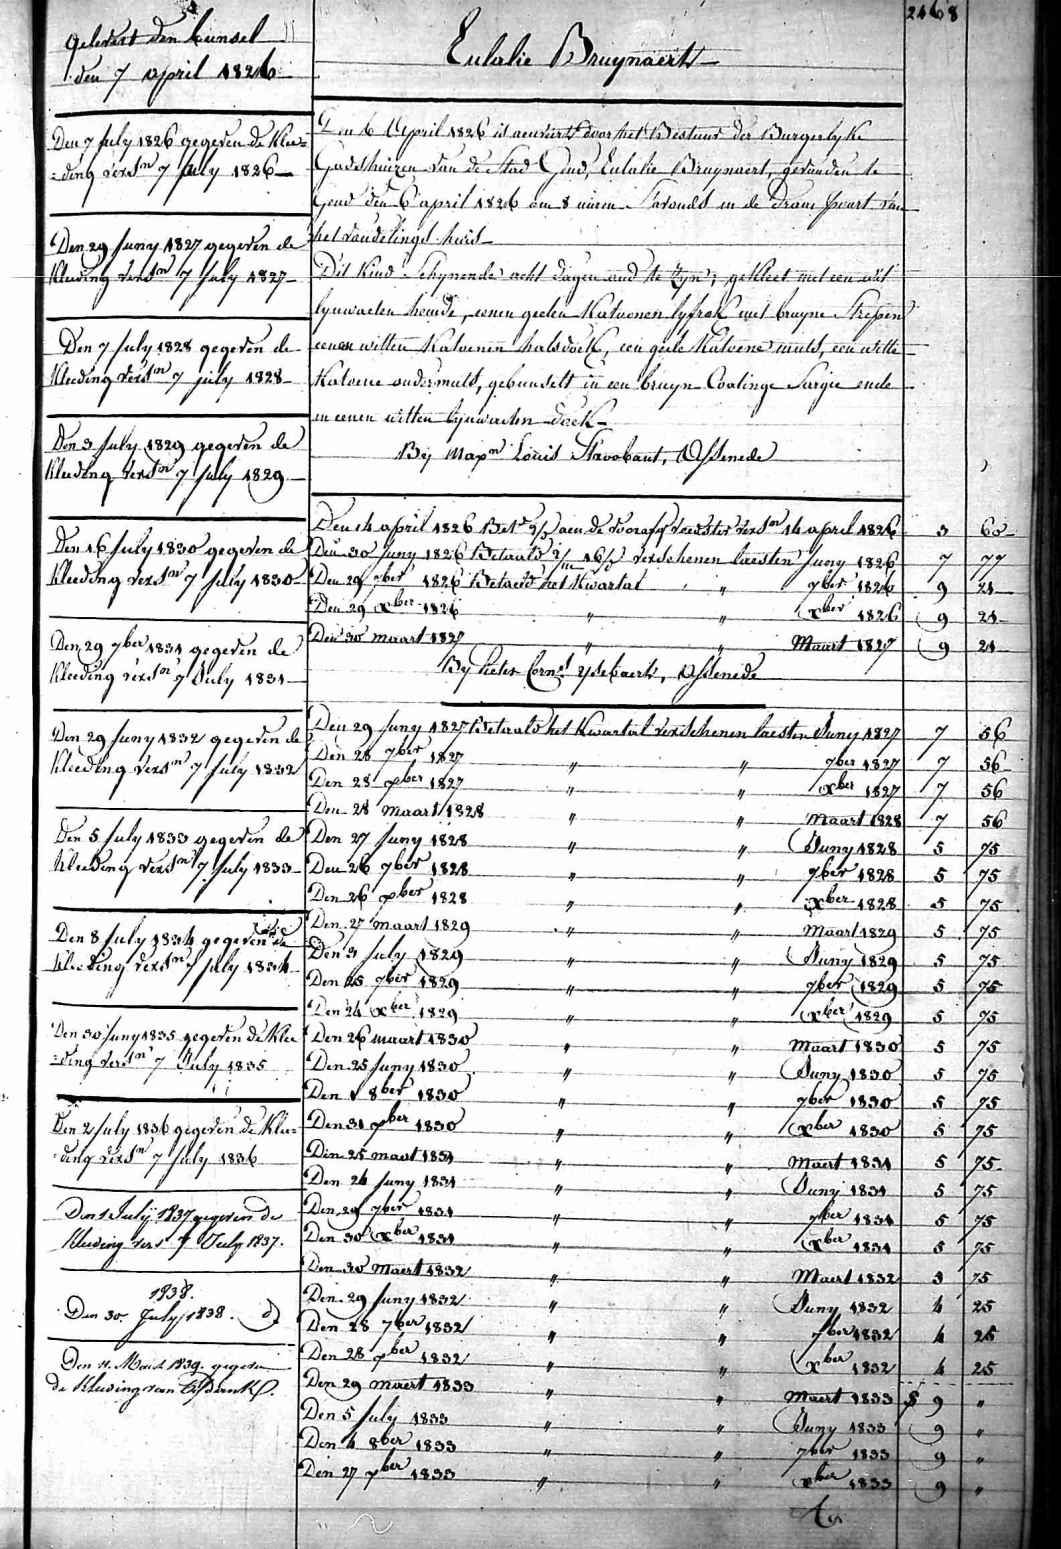 2468
gelevert den bunsel
den 7 april 1826
Den 7 July 1826 gegeven de Klee=
=ding versn 7 July 1826
Den 29 Juny 1827 gegeven de
Kleeding versn 7 July 1827
Den 7 July 1828 gegeven de
Kleeding versn 7 july 1828
Den 3 July 1829 gegeven de
Kleeding versn 7 July 1829
Den 16 July 1830 gegeven de
Kleeding versn 7 july 1830
Den 29 7ber 1831 gegeven de
Kleeding versn 7 July 1831
Den 29 Juny 1832 gegeven de
Kleeding versn 7 July 1832
Den 5 July 1833 gegeven de
Kleeding versn 7 July 1833
Den 8 July 1834 gegeven de
Kleeding versn 7 July 1834
Den 30 Juny 1835 gegeven de Klee
=ding versn 7 July 1835
Den 2 July 1836 gegeven de Klee=
ding versn 7 July 1836
Den 1 July 1837 gegeven de
Kleeding vers 7 July 1837.
1838.
Den 30. July 1838. do
Den 11. 1839. gegeven
de Kleeding van
Eulalie Bruynaert
Den 6 April 1826 is aenveirt door het Bestuur der Burgerlyke
Godshuizen van de Stad Gend, Eulalie Bruynaert, gevonden te
Gend den 6 april 1826 om 8 uiren Savonds in de Draai van
het vondelings huis
Dit Kind Schynende acht dagen oud te zyn; gekleet met een wit
lynwaeten hemde, eenen geelen Katoenen lyfrok met bruyne Strepen
eenen witten Katoenen halsdoek, een geele Katoene muts, een witte
Katoene ondermuts, gebunselt in een bruyn Sargie ende
in eenen witten lynwaeten doek
By Louis Stavobant, Assenede
Den 14 april 1826 aen de versn 14 april 1826 3 65
Den 30 Juny 1826 Betaald verschenen laesten Juny 1826 7 77
Den 29 7ber 1826 Betaeld het Kwartal " 7ber 1826 9 21
Den 29 xber 1826 " " xber 1826 9 21
Den 30 maart 1827 " " Maart 1827 9 21
By Pieter Assenede
Den 29 Juny 1827 Betaald het Kwartal verschenen laesten Juny 1827 7 56
Den 28 7ber 1827 " " 7ber 1827 7 56
Den 28 xber 1827 " " xber 1827 7 56
Den 28 Maart 1828 " " Maart 1828 7 56
Den 27 Juny 1828 " " Juny 1828 5 75
Den 26 7ber 1828 " " 7ber 1828 5 75
Den 26 xber 1828 " " xber 1828 5 75
Den 27 maart 1829 " " Maart 1829 5 75
Den 3 July 1829 " " Juny 1829 5 75
Den 25 7ber 1829 " " 7ber 1829 5 75
Den 24 xber 1829 " " xber 1829 5 75
Den 26 maart 1830 " " Maart 1830 5 75
Den 25 Juny 1830 " " Juny 1830 5 75
Den 1 8ber 1830 " " 7ber 1830 5 75
Den 31 xber 1830 " " xber 1830 5 75
Den 25 maart 1831 " " Maert 1831 5 75
Den 24 Juny 1831 " " Juny 1831 5 75
Den 29 7ber 1831 " " 7ber 1831 5 75
Den 30 xber 1831 " " xber 1831 5 75
Den 30 Maert 1832 " " Maert 1832 3 75
Den 29 Juny 1832 " " Juny 1832 4 25
Den 28 7ber 1832 " " 7ber 1832 4 25
Den 28 xber 1832 " " xber 1832 4 25
Den 29 maert 1833 " " Maert 1833 9 "
Den 5 July 1833 " " Juny 1833 9 "
Den 4 8ber 1833 " " 7ber 1833 9 "
Den 27 xber 1833 " " xber 1833 9 "